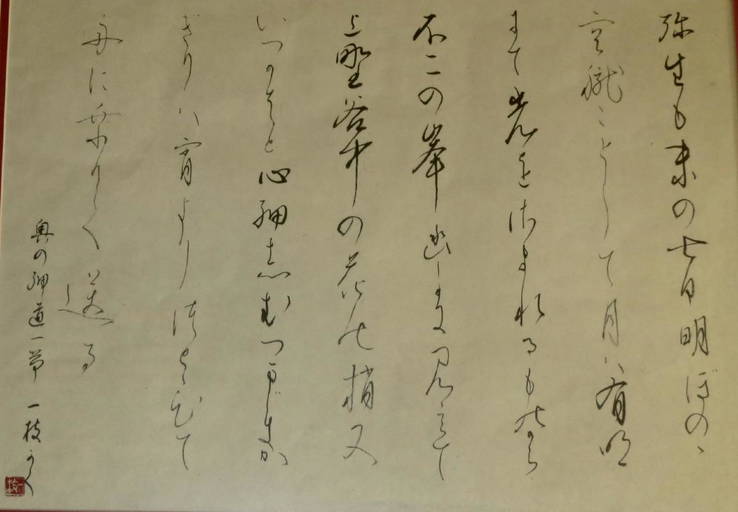 弥生も末の七日明ぼのゝ
空朧々として月ハ有明
にて光をさまれるものから
不二の峯幽にみえて
上野谷中の花の梢又
いつかはと心細しむつましき
かきりハ宵よりつとひて
舟に乗りて送る
奥の細道一節 一枝